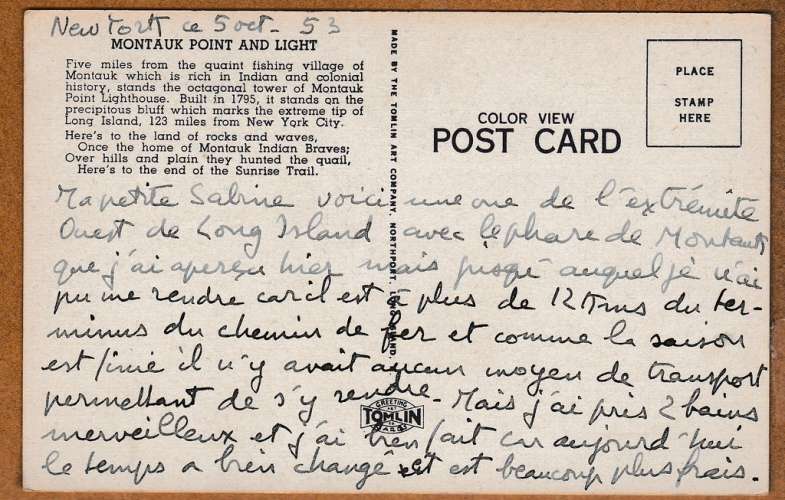 New York ce 5 oct - 53
MONTAUK POINT AND LIGHT
Five miles from the quaint fishing village of
Montauk which is rich in Indian and colonial
history, stands the octagonal tower of Montauk
Point Lighthouse. Built in 1795, it stands on the
precipitous bluff which marks the extreme tip of
Long Island, 123 miles from New York City.
Here's to the land of rocks and waves,
Once the home of Montauk Indian Braves;
Over hills and plain they hunted the quail,
Here's to the end of the Sunrise Trail.
MADE BY THE TOMLIN ART COMPANY, NORTHPORT, LONG ISLAND.
COLOR VIEW
POST CARD
PLACE
STAMP
HERE
Ma petite Sabine voici une vue de l'extrémité
Ouest de Long Island avec le phare de Montauk
que j'ai aperçu hier mais jusqu'auquel je n'ai
pu me rendre car il est à plus de 12 Kms du ter-
minus du chemin de fer et comme la saison
est finie il n'y avait aucun moyen de transport
permettant de s'y rendre. Mais j'ai pris 2 bains
merveilleux et j'ai bien fait car aujourd'hui
le temps a bien changé et est beaucoup plus frais.
GREETING
TOMLIN
CARDS